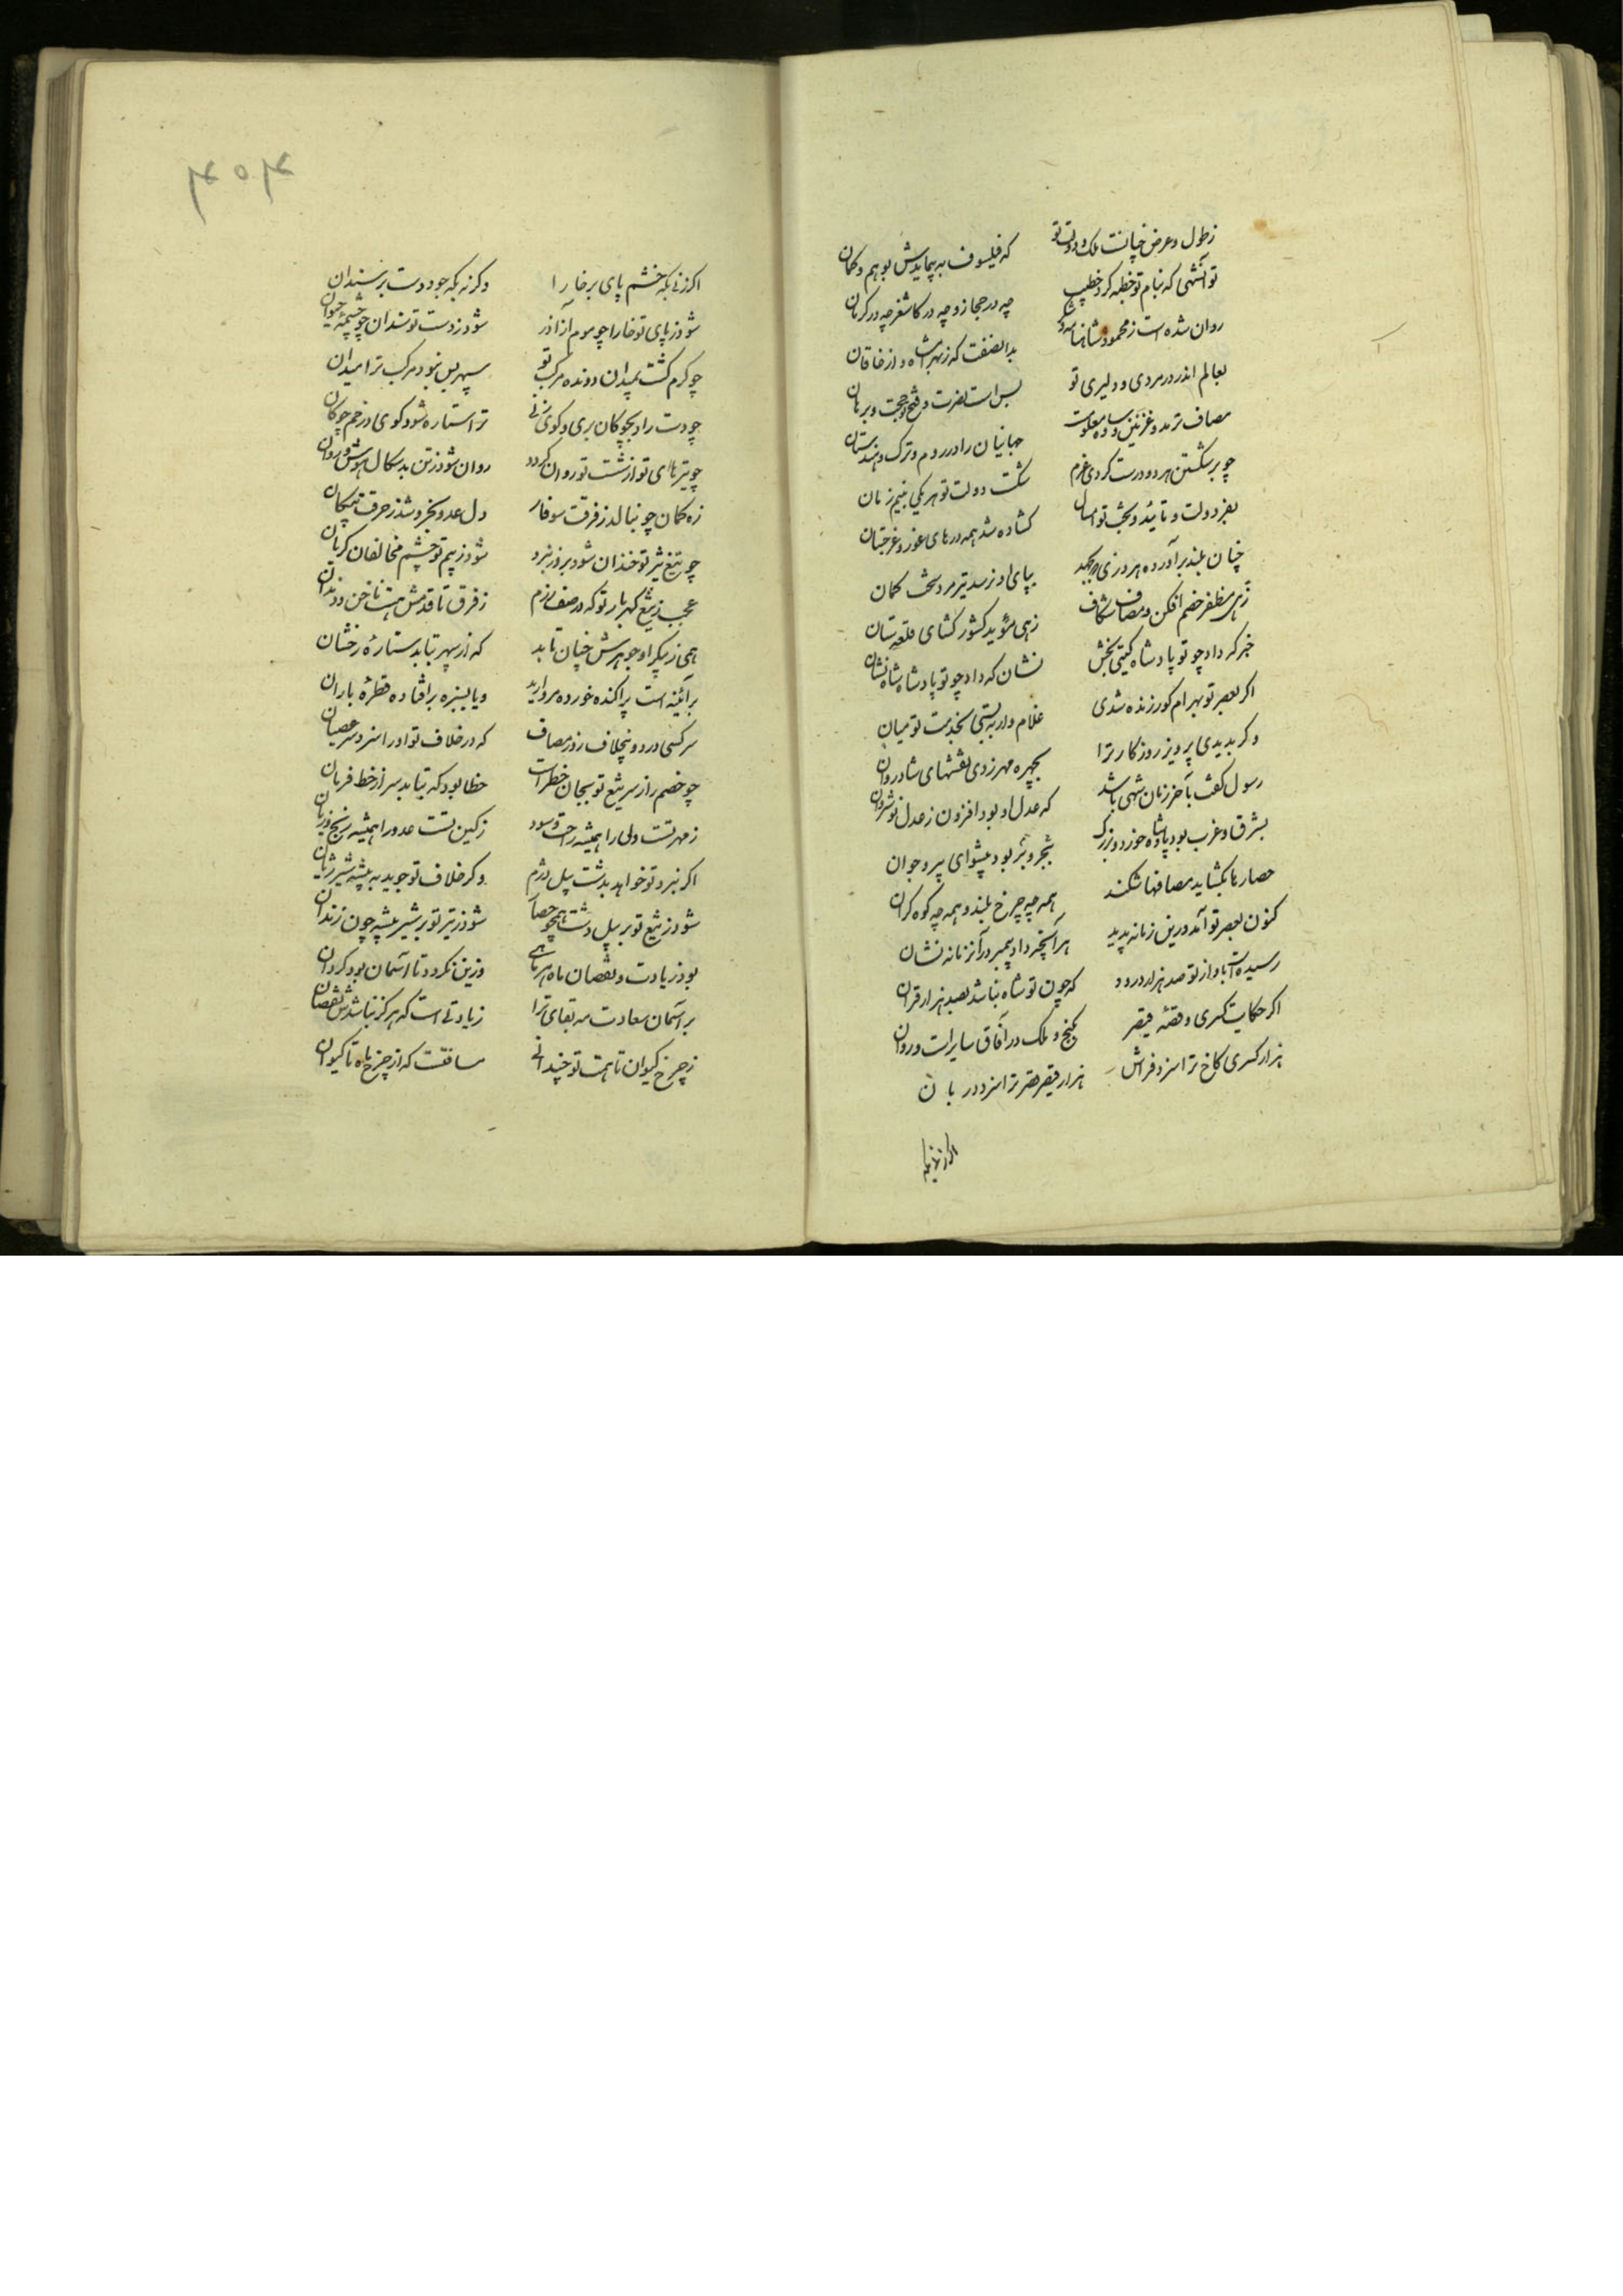 زطول و عرض چنانست ملک و دولت تو که فیلسوف نه پیمایدش بوهم و کمان
تو آنشهی که بنام تو خطبه کرد خطیب چه در حجاز و چه در کاشغر چه در کرمان
روان شده است ز محمود شاهنامه و بدانصفت که زبهر است و از خاقان
بعالم اندر در مردی و دلیری تو بس است نصرت و فتح و حجت و برهان
مصاف ترمد و غزنین و ساوه معلومست جهانیان را در روم و ترک و هندستان
چو بر شکستن هر دو درست کردی عزم شکست دولت تو هر یکی بنیم زمان
بفر دولت و تایید و بخت تو امسال کشاده شد همه درهای غور و غرجستان
چنان بلند برآورده هر دزی که بجهد بپای او نرسد تیر مرد سخت کمان
زهی مظفر خصم افکن و مصاف شکاف زهی مؤید کشور کشای قلعه ستان
خبر که داد چو تو پادشاه کیتی بخش نشان که داد چو تو پادشاه شاه نشان
اکر بعصر تو بهرام کور زنده شدی غلام وار ببستی بخدمت تو میان
وکر بدیدی پرویز روزکار ترا بچهره مهر زدی نقشهای شادروان
رسول کفت بآخر زمان شهی باشد که عدل او بود افزون ز عدل نوشروان
بشرق و غرب بود پادشاه خورد و بزرک ببحر و بر بود پیشوای پیر و جوان
حصارها بکشاید مصافها شکند همه چه چرخ بلند و همه چه کوه کران
کنون بعصر تو آمد درین زمانه پدید هر آنچه داد پیمبر در آنزمانه نشان
رسیده است باو از تو صد هزار درود که چون تو شاه نباشد بصد هزار قران
اکر حکایت کسری و قصه قیصر بکنج و ملک در آفاق سایرات و روان
هزار کسری کاخ ترا سزد فراش هزار قیصر قصر ترا سزد دربان
اکر زنی بکه خشم پای بر خارا وکرنه بکه جود دست بر سندان
شود ز پای تو خارا چو موم از آذر شود ز دست تو سندان چو چشمه حیوان
چو کرم کشت بمیدان دونده مرکب تو سپهر بس نبود مرکب ترا میدان
چو دست را بچوکان بری و کوی زنی ترا ستاره شود کوی در خم چوکان
چو تیرهای تو از شست تو روان کردد روان شود ز تن بدسکال هوش و روان
زه کمان چو بنالد ز فرقت سوفار دل عدو بخروشد ز حرقت پیکان
چو تیغ تیز تو خندان شود بروز نبرد شود ز بیم تو چشم مخالفان کریان
عجب ز تیغ کهربار تو که در صف رزم ز فرق تا قدمش هست ناخن و دندان
همی ز پیکر او جوهرش چنان تابد که از سپهر بتابد ستارهٔ رخشان
بر آئینه است پراکنده خورده مروارید و یا بسبزه بر افتاده قطرهٔ باران
سر کسی درود بخلاف روز مصاف که در خلاف تو او را سزد سر عصیان
چو خصم را ز سر تیغ تو بجان خطر است خطا بود که بتابد سر از خط فرمان
ز مهر تست ولی را همیشه راحت و سود ز کین تست عدو را همیشه رنج و زیان
اکر نبرد تو خواهد بدشت پیل دژم وکر خلاف تو جوید به بیشه شیر ژیان
شود ز تیغ تو بر پیل دشت همچو حصار شود ز تیر تو بر شیر بیشه چون زندان
بود زیادت و نقصان ماه هر ماهی وزین نکردد تا آسمان بود کردان
بر آسمان سعادت مه بقای ترا زیادتی است که هرکز نباشدش نقصان
ز چرخ کیوان تا همت تو چندانی مسافت که از چرخ ماه تا کیوان
اکر زنی بکه
۴۰۴